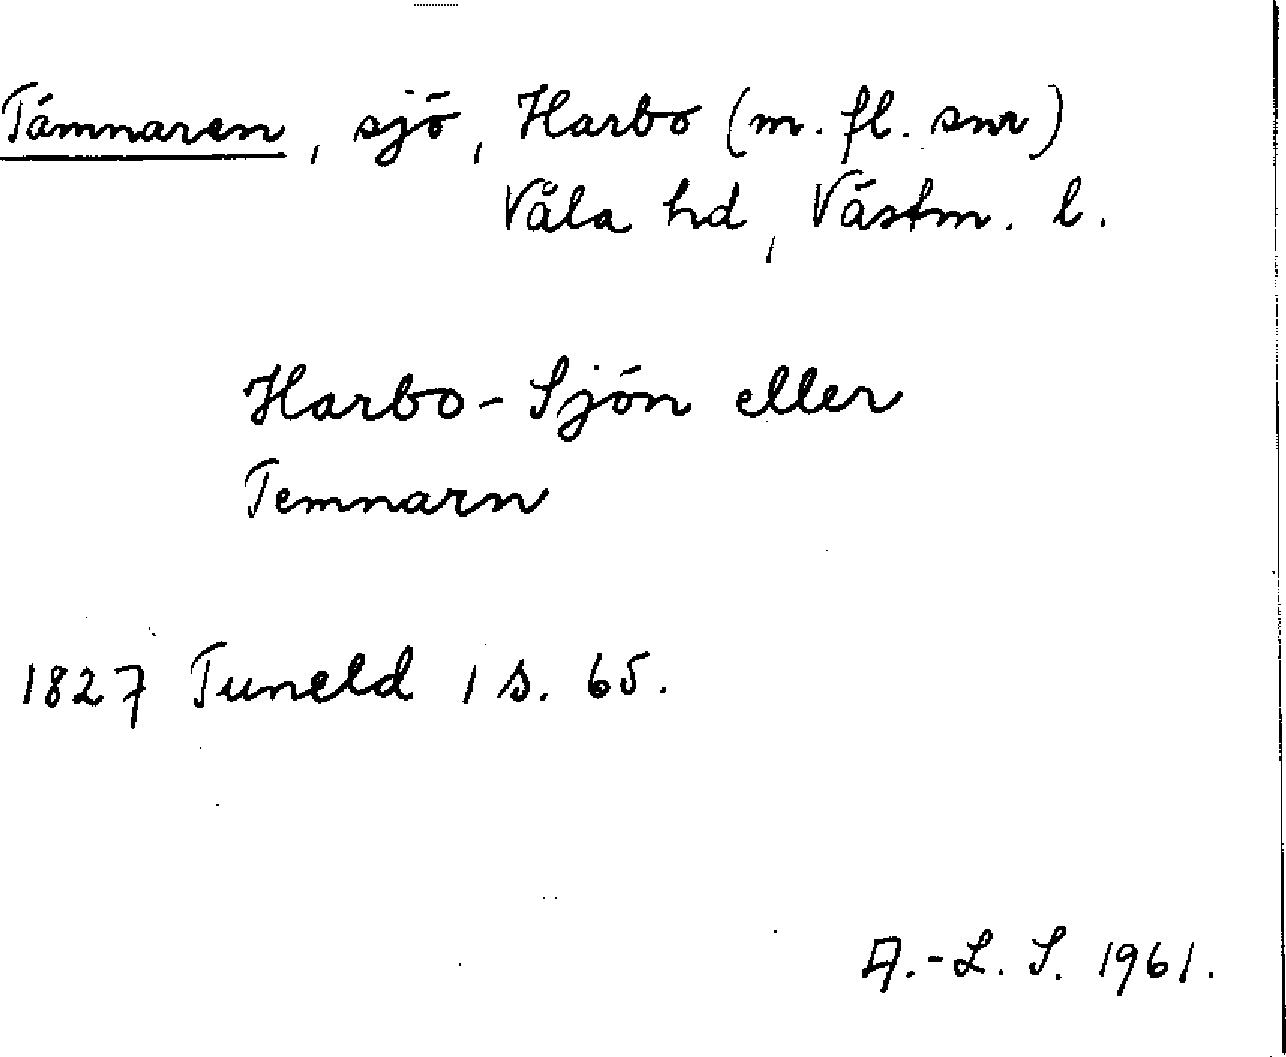 Tämnaren, sjö, Harbo (m. fl. snr)
Våla hd, Västm. l.
Harbo-Sjön eller
Temnarn
1827 Tuneld 1 s. 65.
A.-L. S. 1961.